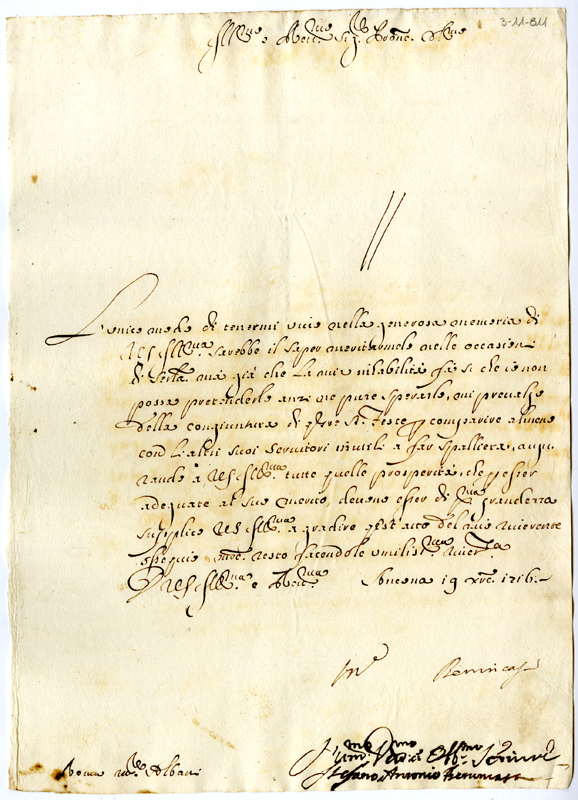 3-11-811
Ill.mo e Rev.mo Sig.
L'unico modo di tenermi vivo nella generosa memoria di
VS Ill.ma sarebbe il saper meritarmelo nelle occasioni
di servirla, mà già che la mia inhabilità fà si che io non
possa pretenderle anzi ne pure sperarle, mi prevalgo
della congiuntura di queste S.te Feste p comparire almeno
con li altri suoi servitori inutili a far spalliera, augu
rando à VS Ill.ma tutte quelle prosperità, che p esser
adequate al suo merito, devono esser di grandezza
supplico VS Ill.ma a gradire quest'atto del mio riverente
ossequio mentre resto facendole umiliss.ma river.za
Di VS Ill.ma e Rev.ma Ancona 19 Xbre 1716.
Benincasa
Um.mo Dev.mo Obb.mo
Stefano Antonio Benincasa
Roma Albani